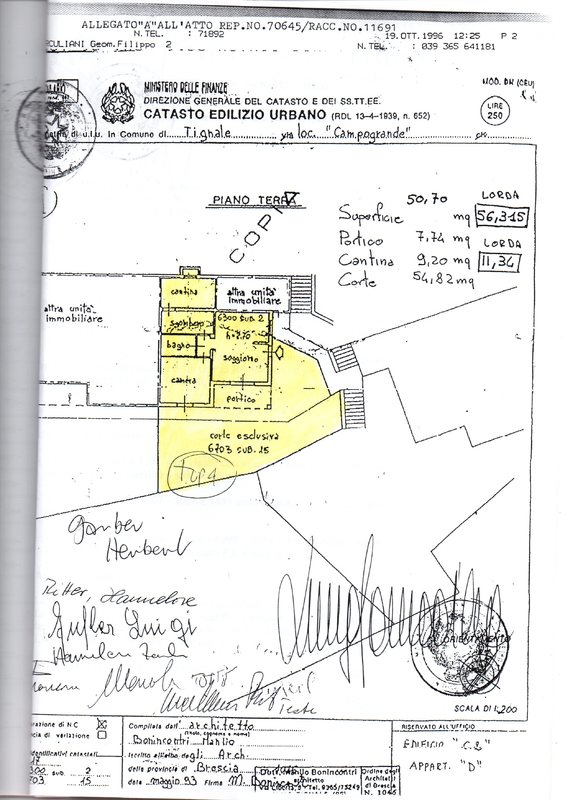 ALLEGATO"A"ALL'ATTO REP.NO.70645/RACC.NO.11691
N.TEL. : 71892
19.OTT.1996 12:25 P 2
CULIANI Geom.Filippo 2
N.TEL. : 039 365 641181
MINISTERO DELLE FINANZE
MOD. BN (CEU)
DIREZIONE GENERALE DEL CATASTO E DEI SS.TT.EE.
CATASTO EDILIZIO URBANO (RDL 13-4-1939, n. 652)
LIRE
250
di u.i.u. in Comune di Tignale via loc. "Campogrande" civ.
PIANO TERRA
COPIA
50,70 LORDA
Superficie mq 56,315
Portico 7.74 mq LORDA
Cantina 9,20 mq 11,34
Corte 54,82 mq
cantina
altra unità
immobiliare
altra unità
immobiliare
sgombero
6300 SUB. 2
h=2.70
bagno
soggiorno
camera
portico
corte esclusiva
6703 SUB. 15
Herbert
Ritter, Hannelore
Luigi
Teste
ORIENTAMENTO
SCALA DI 1:200
azione di N.C.
cia di variazione
Compilata dall'architetto
(Titolo, cognome e nome)
Bonincontri Manlio
RISERVATO ALL'UFFICIO
dentificativi catastali
Iscritto all'albo degli Arch.
EDIFICIO "C2"
17
300 sub. 2
703 15
della provincia di Brescia
data maggio 93 Firma M. Bonincontri
APPART. "D"
Dott. Manlio Bonincontri
architetto
Ordine degli
Architetti
di Brescia
N. 1065